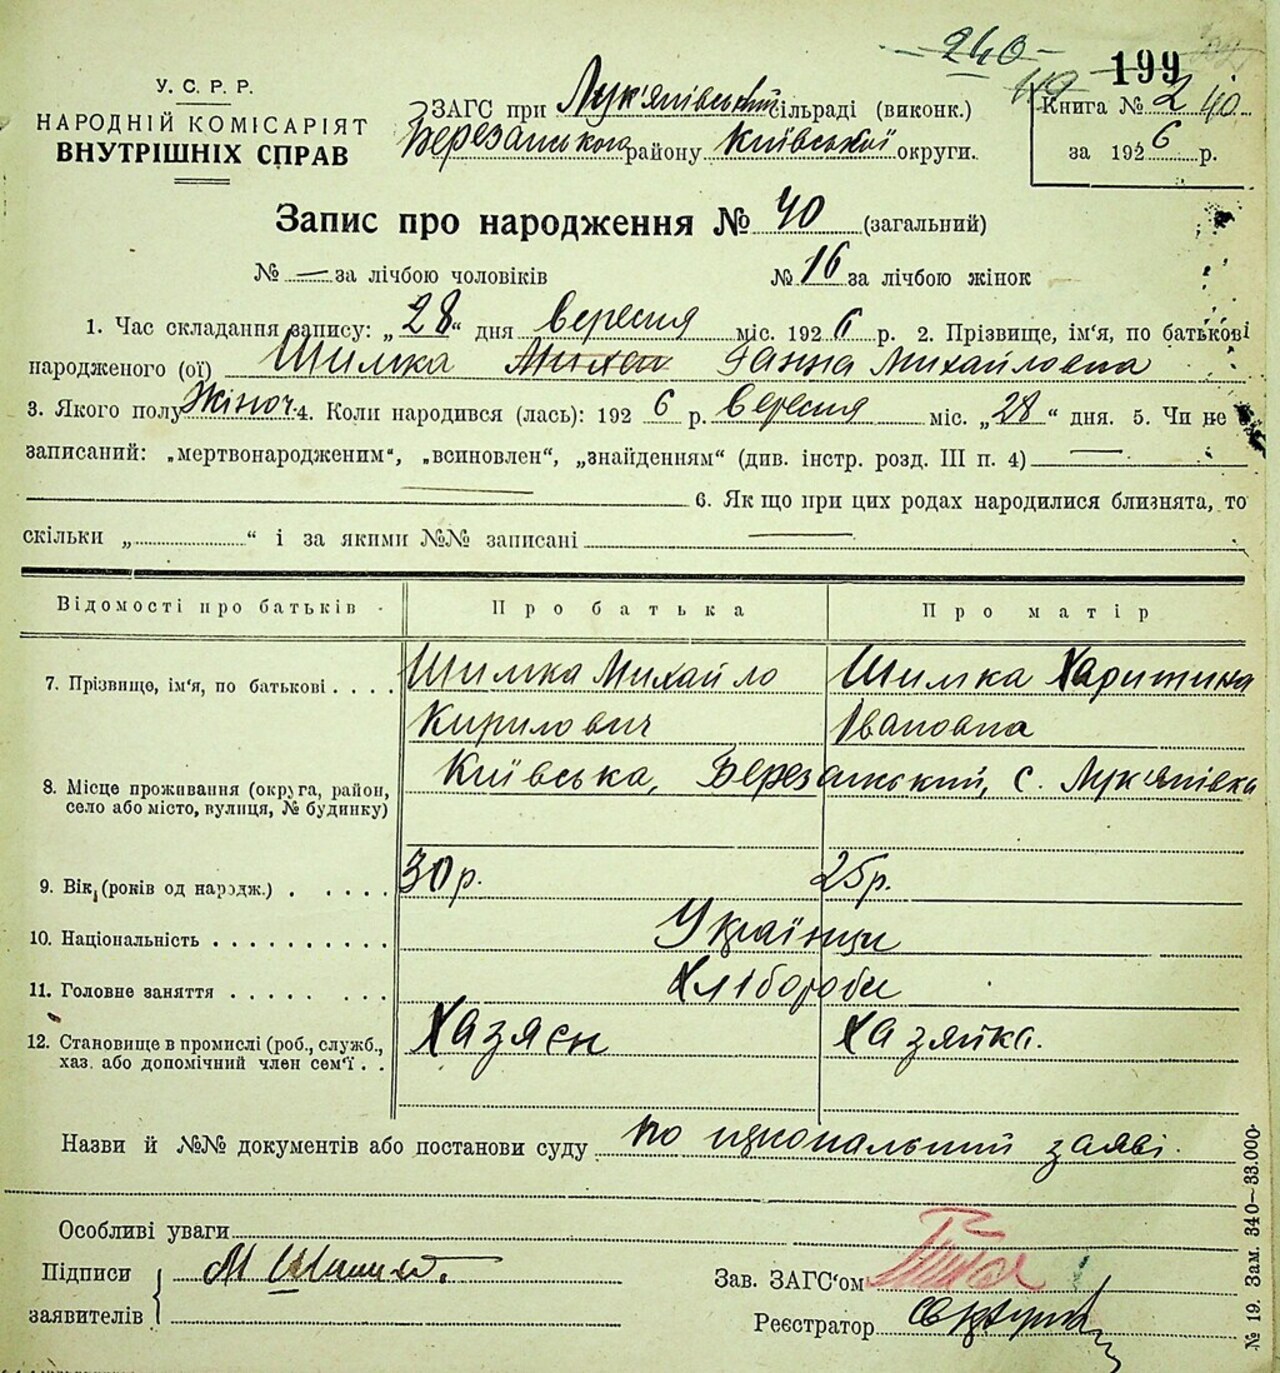 240
199
У. С. Р. Р.
НАРОДНІЙ КОМІСАРІЯТ
ВНУТРІШНІХ СПРАВ
ЗАГС при Лук'янівський сільраді (виконк.)
Березанського району Київської округи.
Книга № 2 40
за 1926 р.
Запис про народження № 40 (загальний)
№ — за лічбою чоловіків № 16 за лічбою жінок
1. Час складання запису: „28“ дня вересня міс. 1926 р. 2. Прізвище, ім'я, по батькові
народженого (ої) Шимка Михай Ганна Михайловна
3. Якого полу Жіноч. 4. Коли народився (лась): 1926 р. вересня міс. „28“ дня. 5. Чи не
записаний: „мертвонародженим“, „всиновлен“, „знайденням“ (див. інстр. розд. III п. 4) —
— 6. Як що при цих родах народилися близнята, то
скільки „ “ і за якими №№ записані —
Відомості про батьків Про батька Про матір
7. Прізвище, ім'я, по батькові . . . . Шимка Михайло Шимка Харитина
Кирилович Івановна
8. Місце проживання (округа, район, Київська, Березанський, с. Лук'янівка
село або місто, вулиця, № будинку)
9. Вік (років од народж.) . . . . . 30 р. 25 р.
10. Національність . . . . . . . . . . Українци
11. Головне заняття . . . . . . . . Хлібороби
12. Становище в промислі (роб., служб., Хазяєн Хазяйка.
хаз. або допомічний член сем'ї . .
Назви й №№ документів або постанови суду по заяві.
Особливі уваги
Підписи М Шимка.
заявителів
Зав. ЗАГС'ом
Реєстратор
№ 19. Зам. 340—33.000